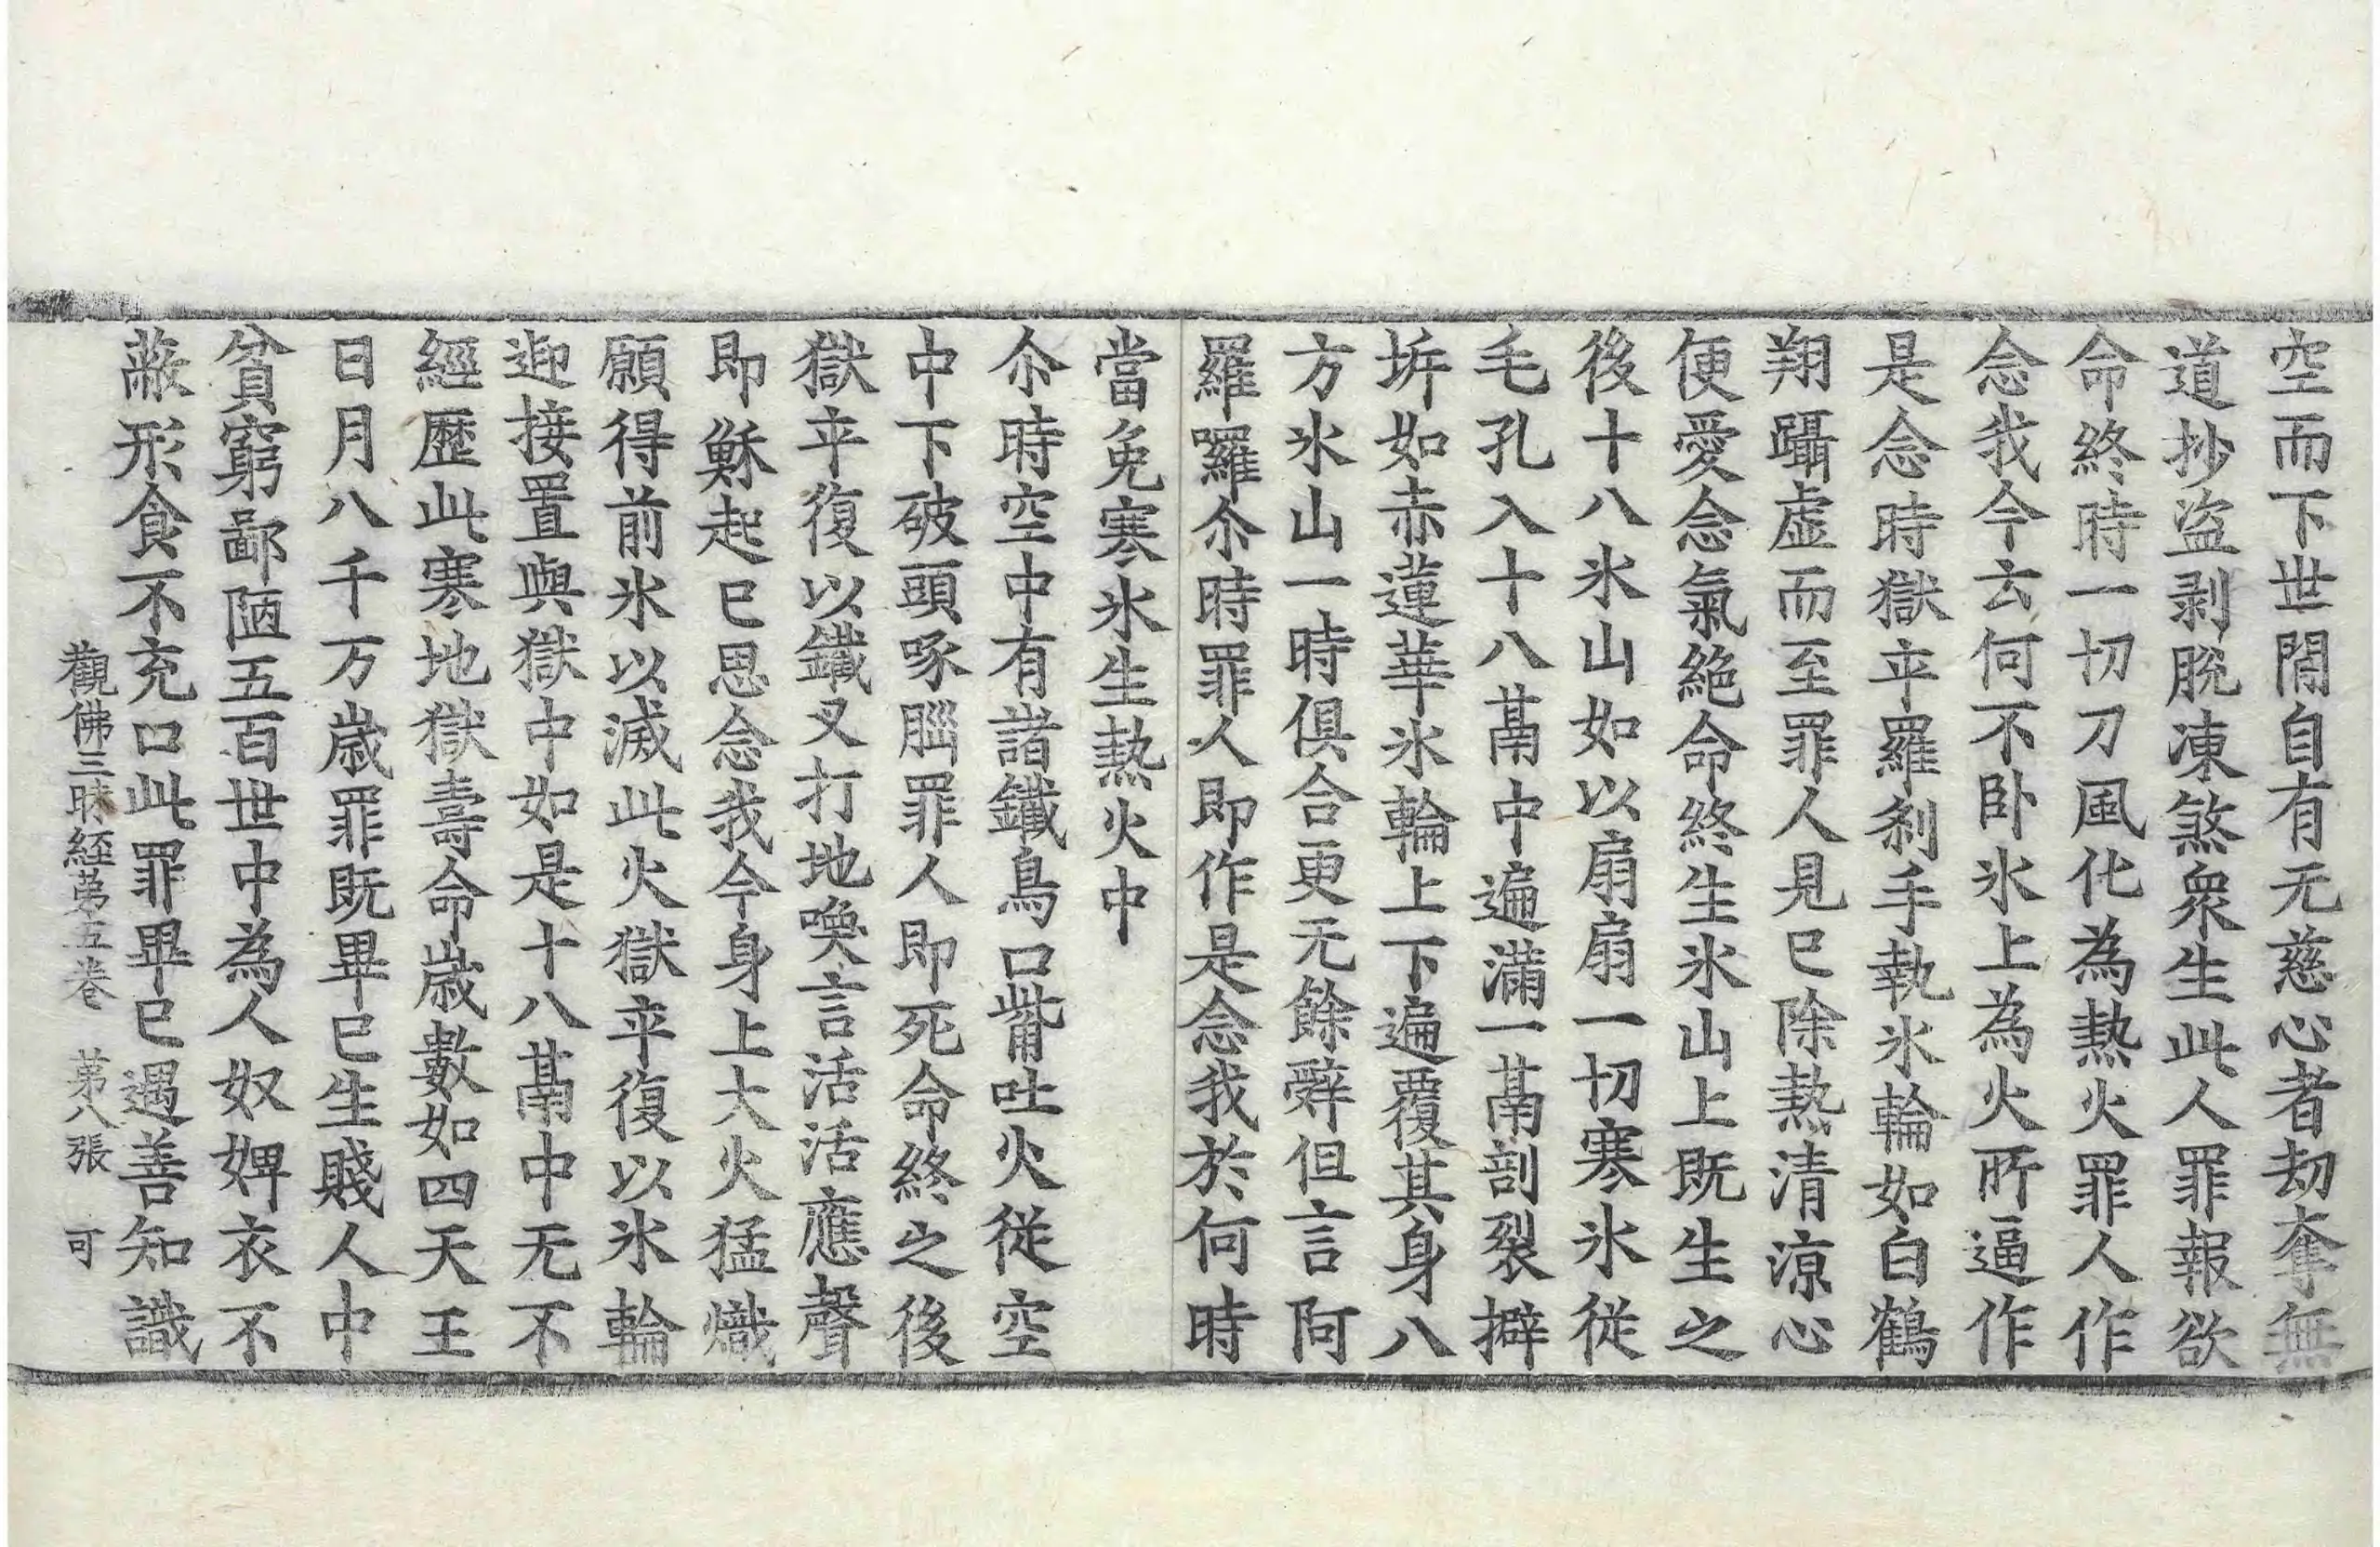 空而下世閒自有无慈心者劫奪無
道抄盗剥脫凍煞衆生此人罪報欲
命終時一切刀風化為熱火罪人作
念我今云何不卧氷上為火所逼作
是念時獄卒羅刹手執氷輪如白鶴
翔躡虛而至罪人見已除熱清涼心
便愛念氣絶命終生氷山上既生之
後十八氷山如以扇扇一切寒氷從
毛孔入十八鬲中遍滿一鬲剖裂擗
坼如赤蓮華氷輪上下遍覆其身八
方氷山一時俱合更无餘辤但言阿
羅囉尒時罪人即作是念我於何時
當免寒氷生熱火中
尒時空中有諸鐵鳥口觜吐火從空
中下破頭啄腦罪人即死命終之後
獄卒復以鐵叉打地喚言活活應聲
即穌起已思念我今身上大火猛熾
願得前氷以滅此火獄卒復以氷輪
迎接置與獄中如是十八鬲中无不
經歷此寒地獄壽命歲數如四天王
日月八千万歲罪既畢已生賤人中
貧窮鄙陋五百世中為人奴婢衣不
蔽形食不充口此罪畢已遇善知識
觀佛三昧経苐五卷 苐八張 可